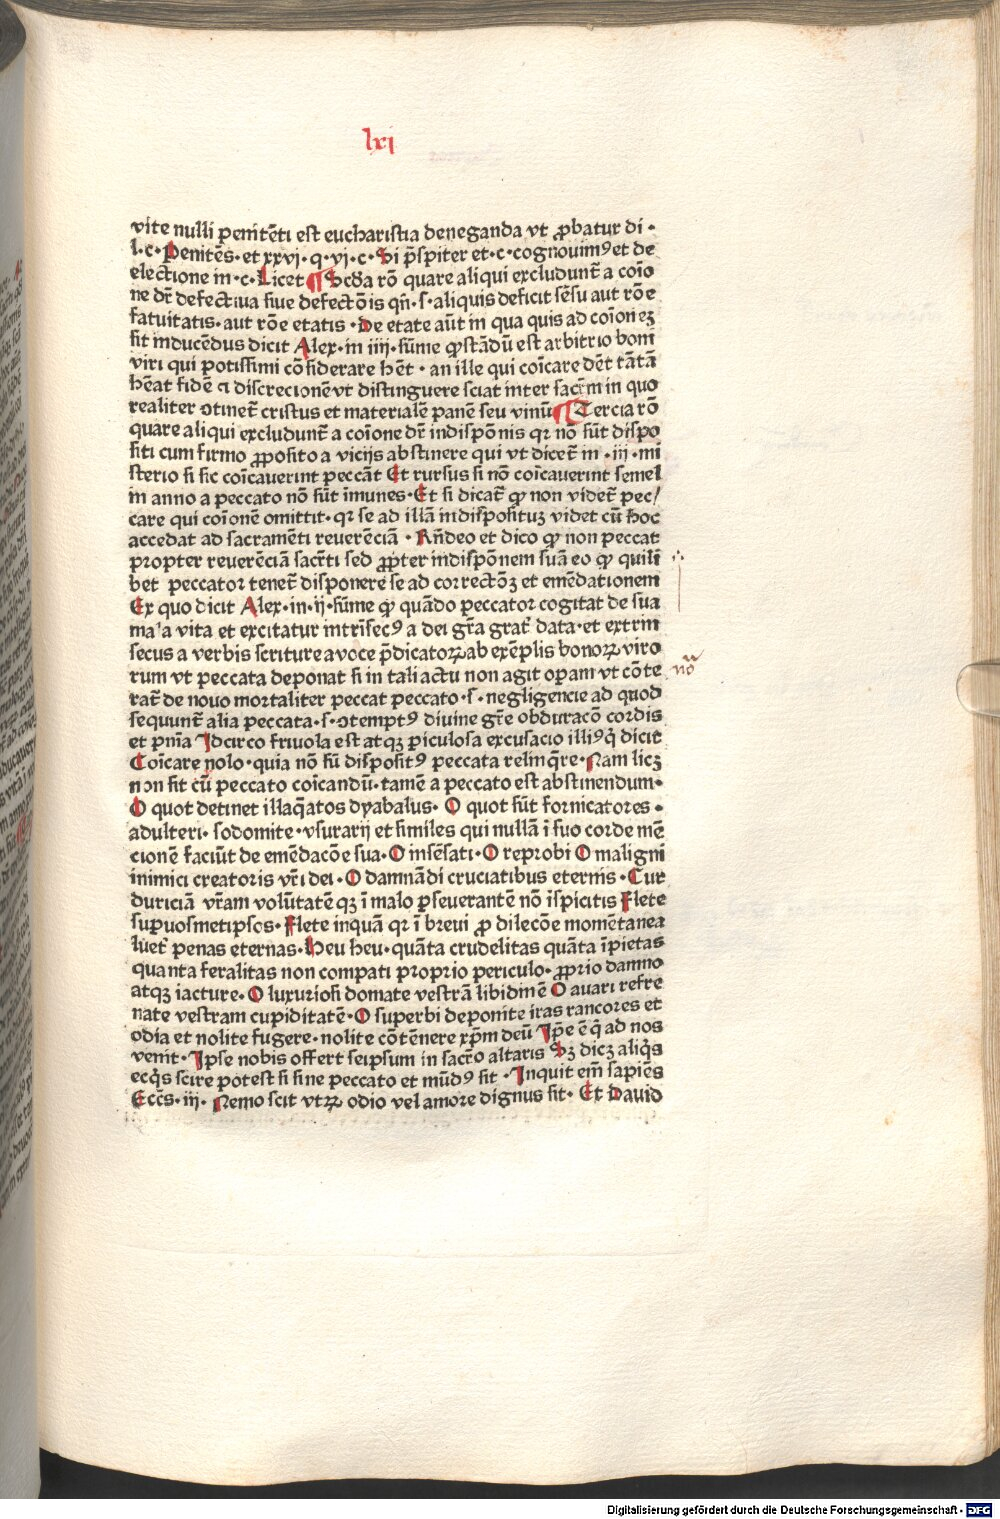 lxi
vite nulli penitẽti est eucharistia deneganda vt ꝓbatur di ·
l·c·Penitẽs·et xxvj·q·vj·c·Si p̃spiter et·c·cognouimꝰ et de
electione in·c·Licet ¶ Scďa rõ quare aliqui excludunt̃ a coĩo
ne dr̃ defectiua siue defectõis qñ·s·aliquis deficit sẽsu aut rõe
fatuitatis·aut rõe etatis·De etate aũt in qua quis ad coĩonẽꝫ
sit inducẽdus dicit Alex·in iiij·sũme ꝙ stãdũ est arbitrio boni
viri qui potissimi cõsiderare hẽt·an ille qui coĩcare dẽt tãtã
hẽat fidẽ ci discrecionẽ vt distinguere sciat inter sacr̃m in quo
realiter ↄtinet̃ cristus et materialẽ panẽ seu vinũ ¶ Tercia rõ
quare aliqui excludunt̃ a coĩone dr̃ indispõnis qꝛ nõ sũt dispo
siti cum firmo ꝓposito a vicijs abstinere qui vt dicet̃ in·iij·mi
sterio si sic coĩcauerint peccãt Et rursus si nõ coĩcauerint semel
in anno a peccato nõ sũt ĩmunes·Et si dicat̃ ꝙ non videt̃ pec/
care qui coĩonẽ omittit·qꝛ se ad illã indisposituꝫ videt cũ hoc
accedat ad sacramẽti reuerẽciã·Rñdeo et dico ꝙ non peccat
propter reuerẽciã sacr̃ti sed ꝓpter indispõnem suã eo ꝙ quilĩ
bet peccator tenet̃ disponere se ad correctõꝫ et emẽdationem
Ex quo dicit Alex·in·ij·sũme ꝙ quãdo peccator cogitat de sua
mala vita et excitatur intrĩsecꝰ a dei gr̃a grat̃ data·et extrin
secus a verbis scripture a voce p̃dicatoꝝ ab exẽplis bonoꝝ viro
rum vt peccata deponat si in tali actu non agit opam vt cõte
rat̃ de nouo mortaliter peccat peccato·s·negligencie ad quod
sequunt̃ alia peccata·s·ↄtemptꝰ diuine gr̃e obduracõ cordis
et pnĩa Idcirco friuola est atqꝫ ꝑiculosa excusacio illiꝰ q̃ dicit
Coĩcare nolo·quia nõ sũ dispositꝰ peccata relinq̃re·Nam licꝫ
non sit cũ peccato coĩcandũ·tamẽ a peccato est abstinendum·
O quot detinet illaq̃atos dyabalus·O quot sũt fornicatores·
adulteri·sodomite·vsurarij et similes qui nullã ĩ suo corde mẽ
cionẽ faciũt de emẽdacõe sua·O insẽsati·O reprobi O maligni
inimici creatoris vr̃i dei·O damnãdi cruciatibus eternis·Cur
duriciã vr̃am volũtatẽqꝫ ĩ malo ꝑseuerantẽ nõ ĩspicitis Flete
super vosmetipsos·Flete inquã qꝛ ĩ breui ꝓ dilecõe momẽtanea
luet̃ penas eternas·Heu heu·quãta crudelitas quãta ĩpietas
quanta feralitas non compati proprio periculo·ꝓprio damno
atqꝫ iacture·O luxuriosi domate vestrã libidinẽ O auari refre
nate vestram cupiditatẽ·O superbi deponite iras rancores et
odia et nolite fugere·nolite cõtẽnere xp̃m deũ Ip̃e ẽ q̃ ad nos
venit·Ipse nobis offert seipsum in sacr̃o altaris Sꝫ dicꝫ aliq̃s
ecq̃s scire potest si sine peccato et mũdꝰ sit·Inquit em̃ sapiẽs
Ecc̃s·iij·Nemo scit vtꝝ odio vel amore dignus sit·Ex Dauid
nõ
Digitalisierung gefördert durch die Deutsche Forschungsgemeinschaft - DFG